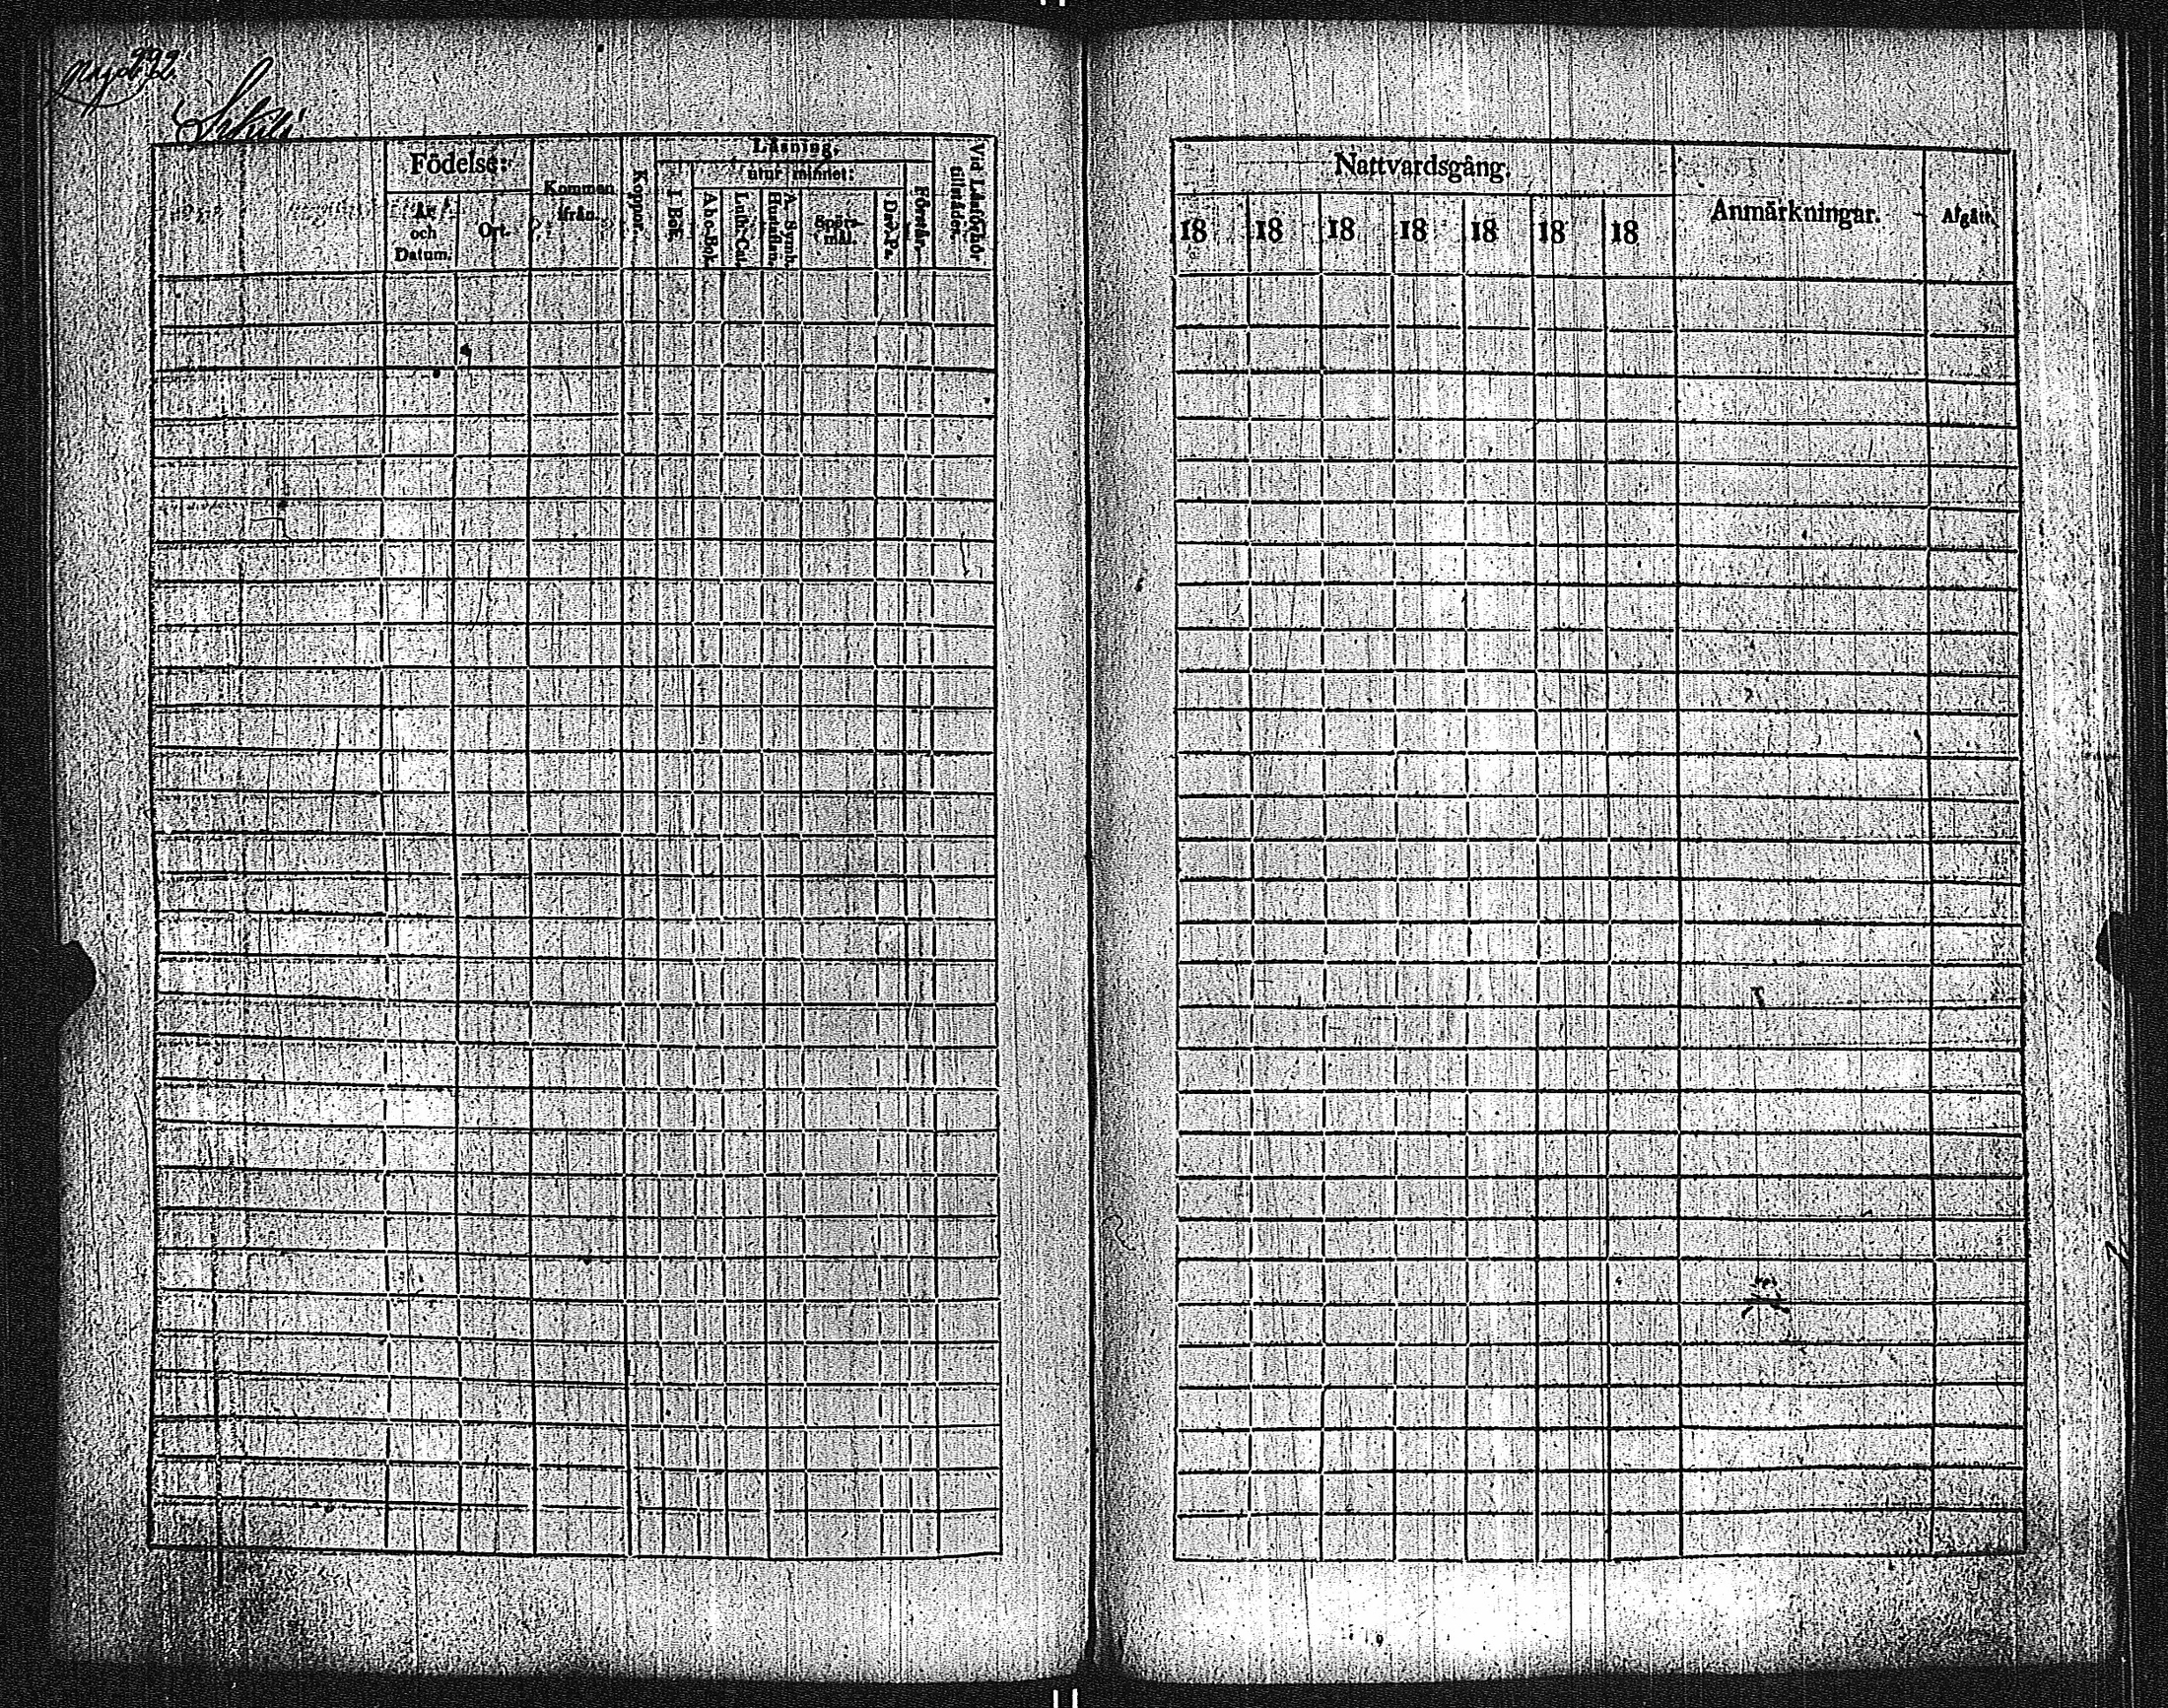 292.
Födelse:
År och Datum.
Ort.
Kommen ifrån.
Koppor.
Läsning,
utur minnet:
I. Bok.
Abc-Bok.
Luth. Cat.
A. Symb. Hustaflan.
Spörsmål.
Dav. Ps.
Förstår.
Vid Läsförhör tillstädes.
Nattvardsgång.
18 18 18 18 18 18 18
Anmärkningar.
Afgått.